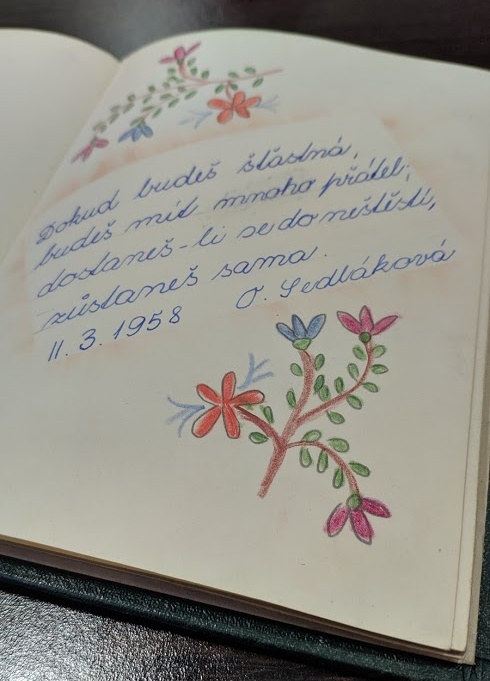 Dokud budeš šťastná,
budeš mít mnoho přátel;
dostaneš-li se do neštěstí,
zůstaneš sama.
11. 3. 1958 O. Sedláková